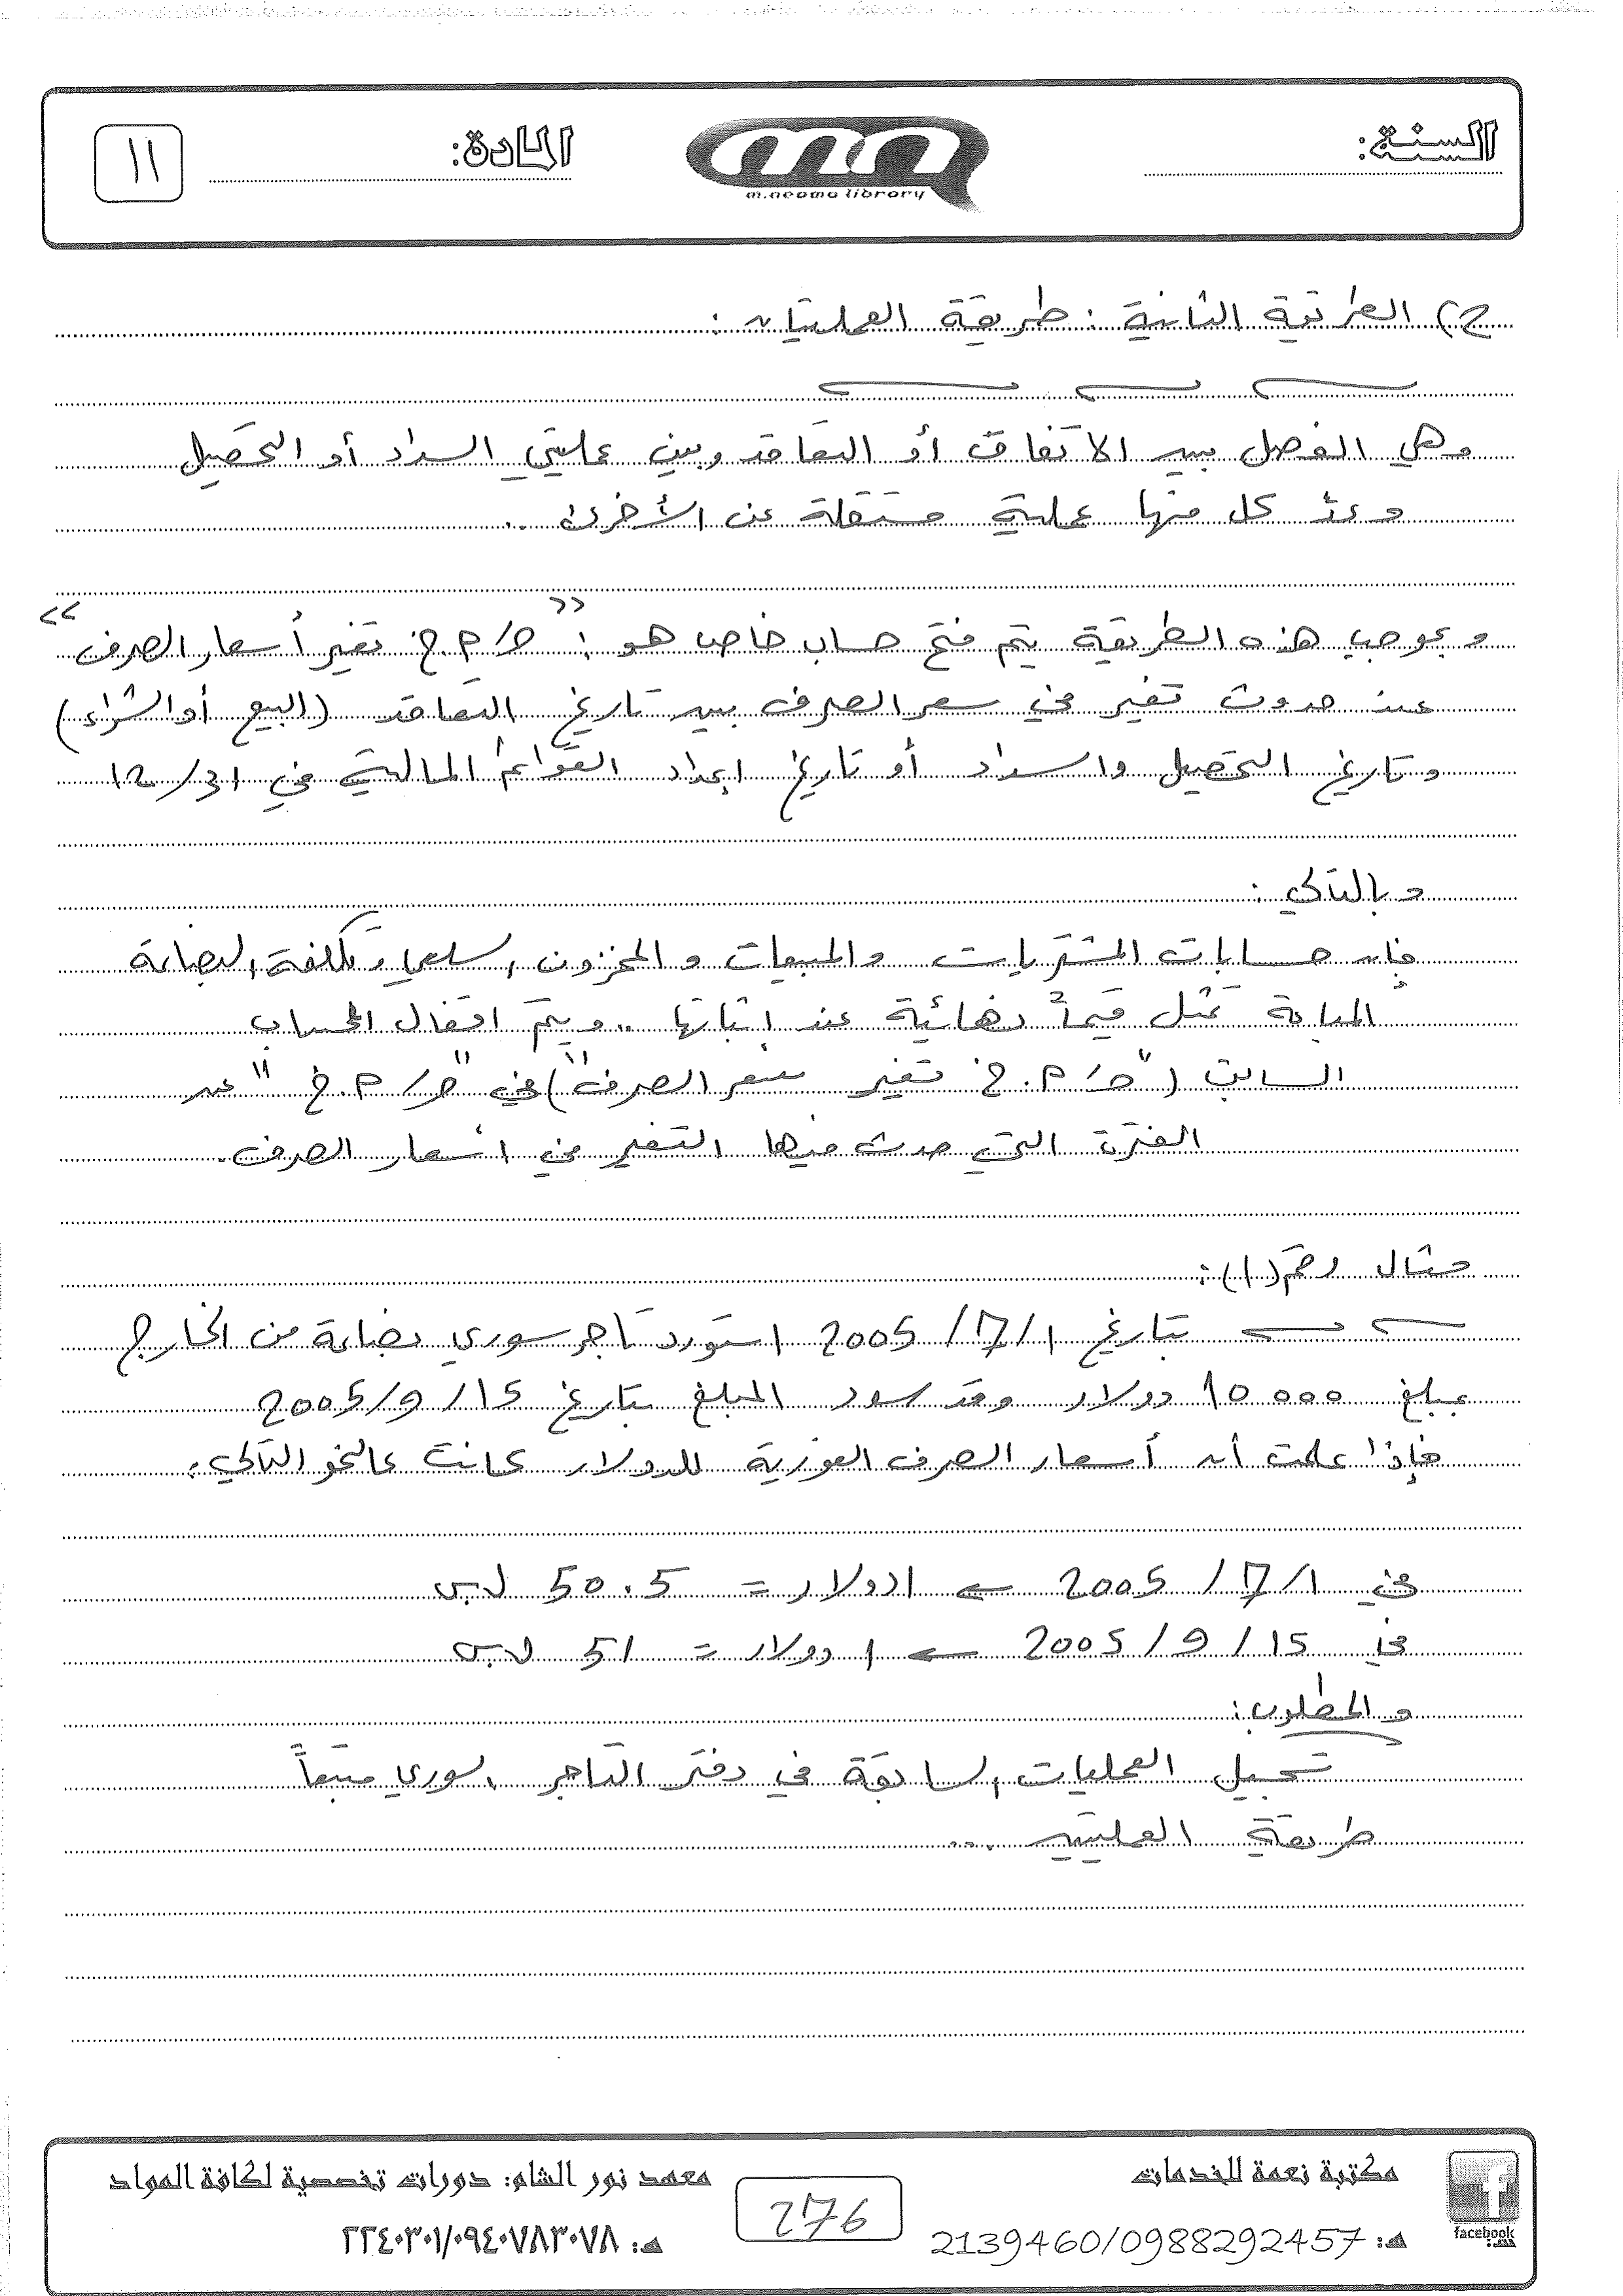 السنة:
m.neama library
المادة:
١١
ج) الطريقة الثانية: طريقة العمليتان:
وهي الفصل بين الاتفاق أو التعاقد وبين عمليتي السداد أو التحصيل
وعدّ كل منها عملية مستقلة عن الأخرى ..
وبموجب هذه الطريقة يتم فتح حساب خاص هو: "ح/ م.خ تغير أسعار الصرف"
عند حدوث تغير في سعر الصرف بين تاريخ التعاقد (البيع أو الشراء)
وتاريخ التحصيل والسداد أو تاريخ إعداد القوائم المالية في 31/12
وبالتالي:
فإن حسابات المشتريات والمبيعات والمخزون السلعي وتكلفة البضاعة
المباعة تمثل قيماً نهائية عند إثباتها .. ويتم اقفال الحساب
السابق ("ح/ م.خ تغير سعر الصرف") في "ح/ م.خ" عن
الفترة التي حدث فيها التغير في أسعار الصرف.
مثال رقم (1):
بتاريخ 1/7/2005 استورد تاجر سوري بضاعة من الخارج
بمبلغ 10000 دولار وقد سدد المبلغ بتاريخ 15/9/2005
فإذا علمت أن أسعار الصرف الفورية للدولار كانت كالنحو التالي:
في 1/7/2005 ← 1 دولار = 50.5 ل.س
في 15/9/2005 ← 1 دولار = 51 ل.س
والمطلوب:
تسجيل العمليات السابقة في دفتر التاجر السوري متبعاً
طريقة العمليتين ...
مكتبة نعمة للخدمات
هـ: 2139460/0988292457
facebook
276
معهد نور الشام: دورات تخصصية لكافة المواد
هـ: ٢٢٤٠٣٠١/٠٩٤٠٧٨٣٠٧٨